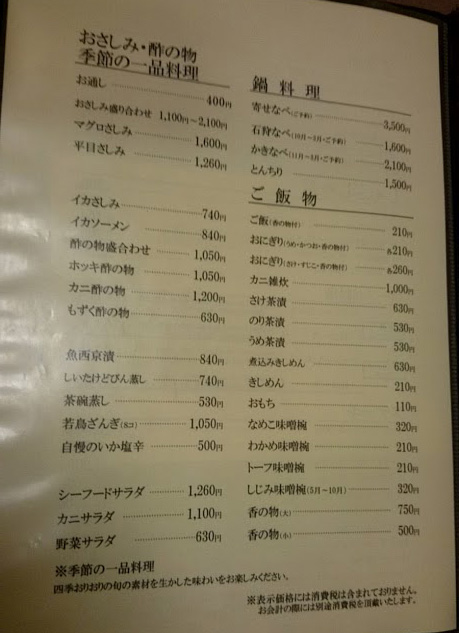 おさしみ・酢の物
季節の一品料理
お通し 400円
おさしみ盛り合わせ 1,100円～2,100円
マグロさしみ 1,600円
平目さしみ 1,260円
イカさしみ 740円
イカソーメン 840円
酢の物盛合わせ 1,050円
ホッキ酢の物 1,050円
カニ酢の物 1,200円
もずく酢の物 630円
魚西京漬 840円
しいたけどびん蒸し 740円
茶碗蒸し 530円
若鳥ざんぎ(8コ) 1,050円
自慢のいか塩辛 500円
シーフードサラダ 1,260円
カニサラダ 1,100円
野菜サラダ 630円
※季節の一品料理
四季おりおりの旬の素材を生かした味わいをお楽しみください。
鍋料理
寄せなべ(ご予約) 3,500円
石狩なべ(10月～3月・ご予約) 1,600円
かきなべ(11月～3月・ご予約) 2,100円
とんちり 1,500円
ご飯物
ご飯(香の物付) 210円
おにぎり(うめ・かつお・香の物付) 各210円
おにぎり(さけ・すじこ・香の物付) 各260円
カニ雑炊 1,000円
さけ茶漬 630円
のり茶漬 530円
うめ茶漬 530円
煮込みきしめん 630円
きしめん 210円
おもち 110円
なめこ味噌椀 320円
わかめ味噌椀 210円
トーフ味噌椀 210円
しじみ味噌椀(5月～10月) 320円
香の物(大) 750円
香の物(小) 500円
※表示価格には消費税は含まれておりません。
お会計の際には別途消費税を頂戴いたします。